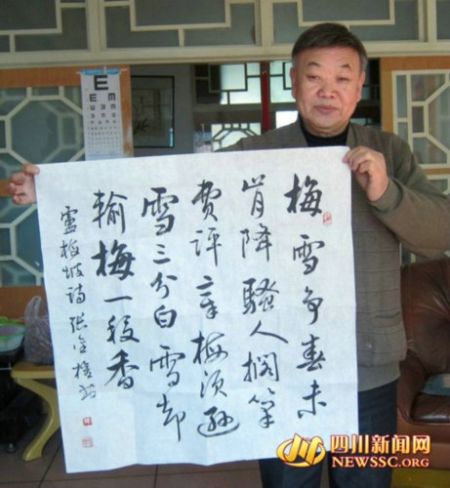 梅雪争春未
肯降騷人搁筆
費评章梅须遜
雪三分白雪却
输梅一段香
盧梅坡诗 张金
E
四川新闻网
NEWSSC.ORG